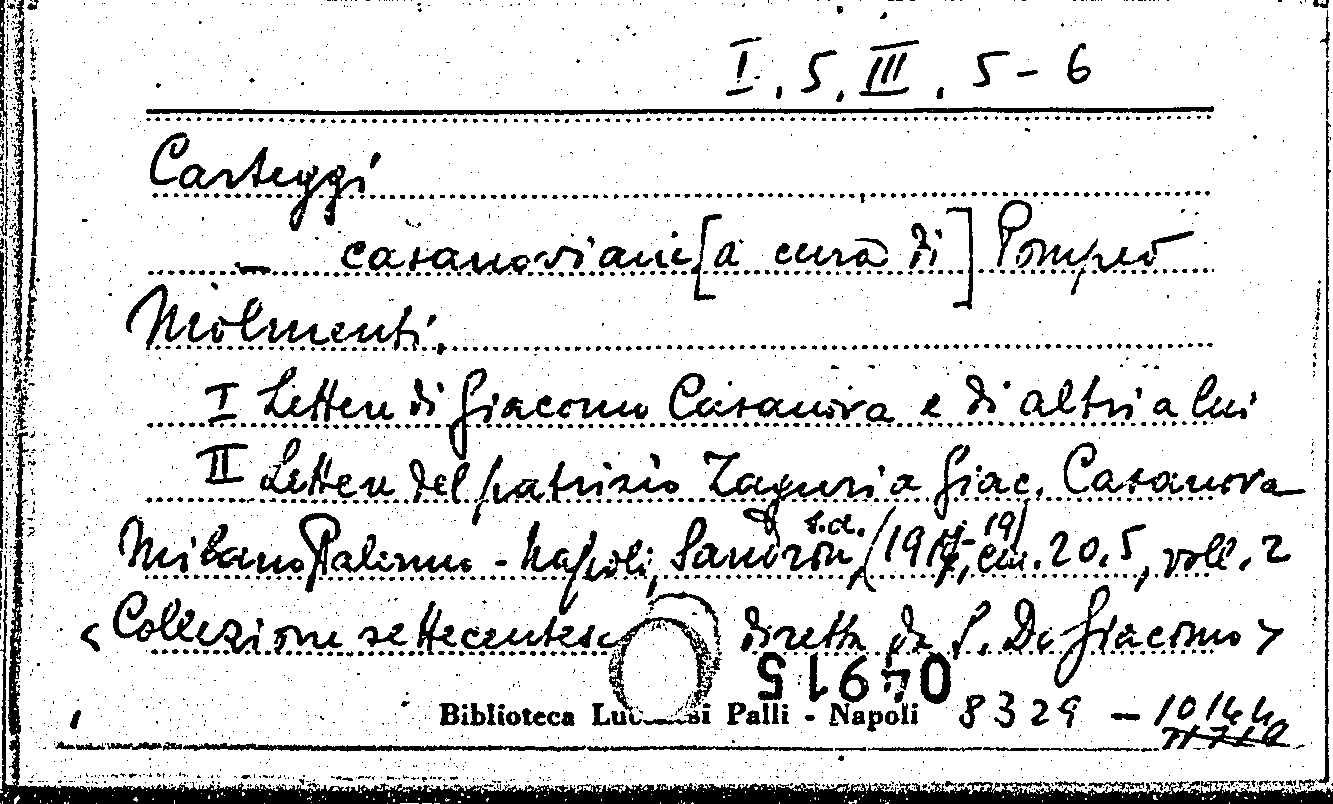 I. 5. III. 5-6
Carteggi
— casanoviani [a cura di] Pompeo
Molmenti.
I Lettere di Giacomo Casanova e di altri a lui
II Lettere del patrizio Zaguri a Giac. Casanova
Milano Palermo - Napoli, Sandron, s.d. (1917-19) cm. 20.5, voll. 2
< Collezione settecentesc diretta da S. Di Giacomo >
04915
Biblioteca Luc si Palli - Napoli 8329 - 10144